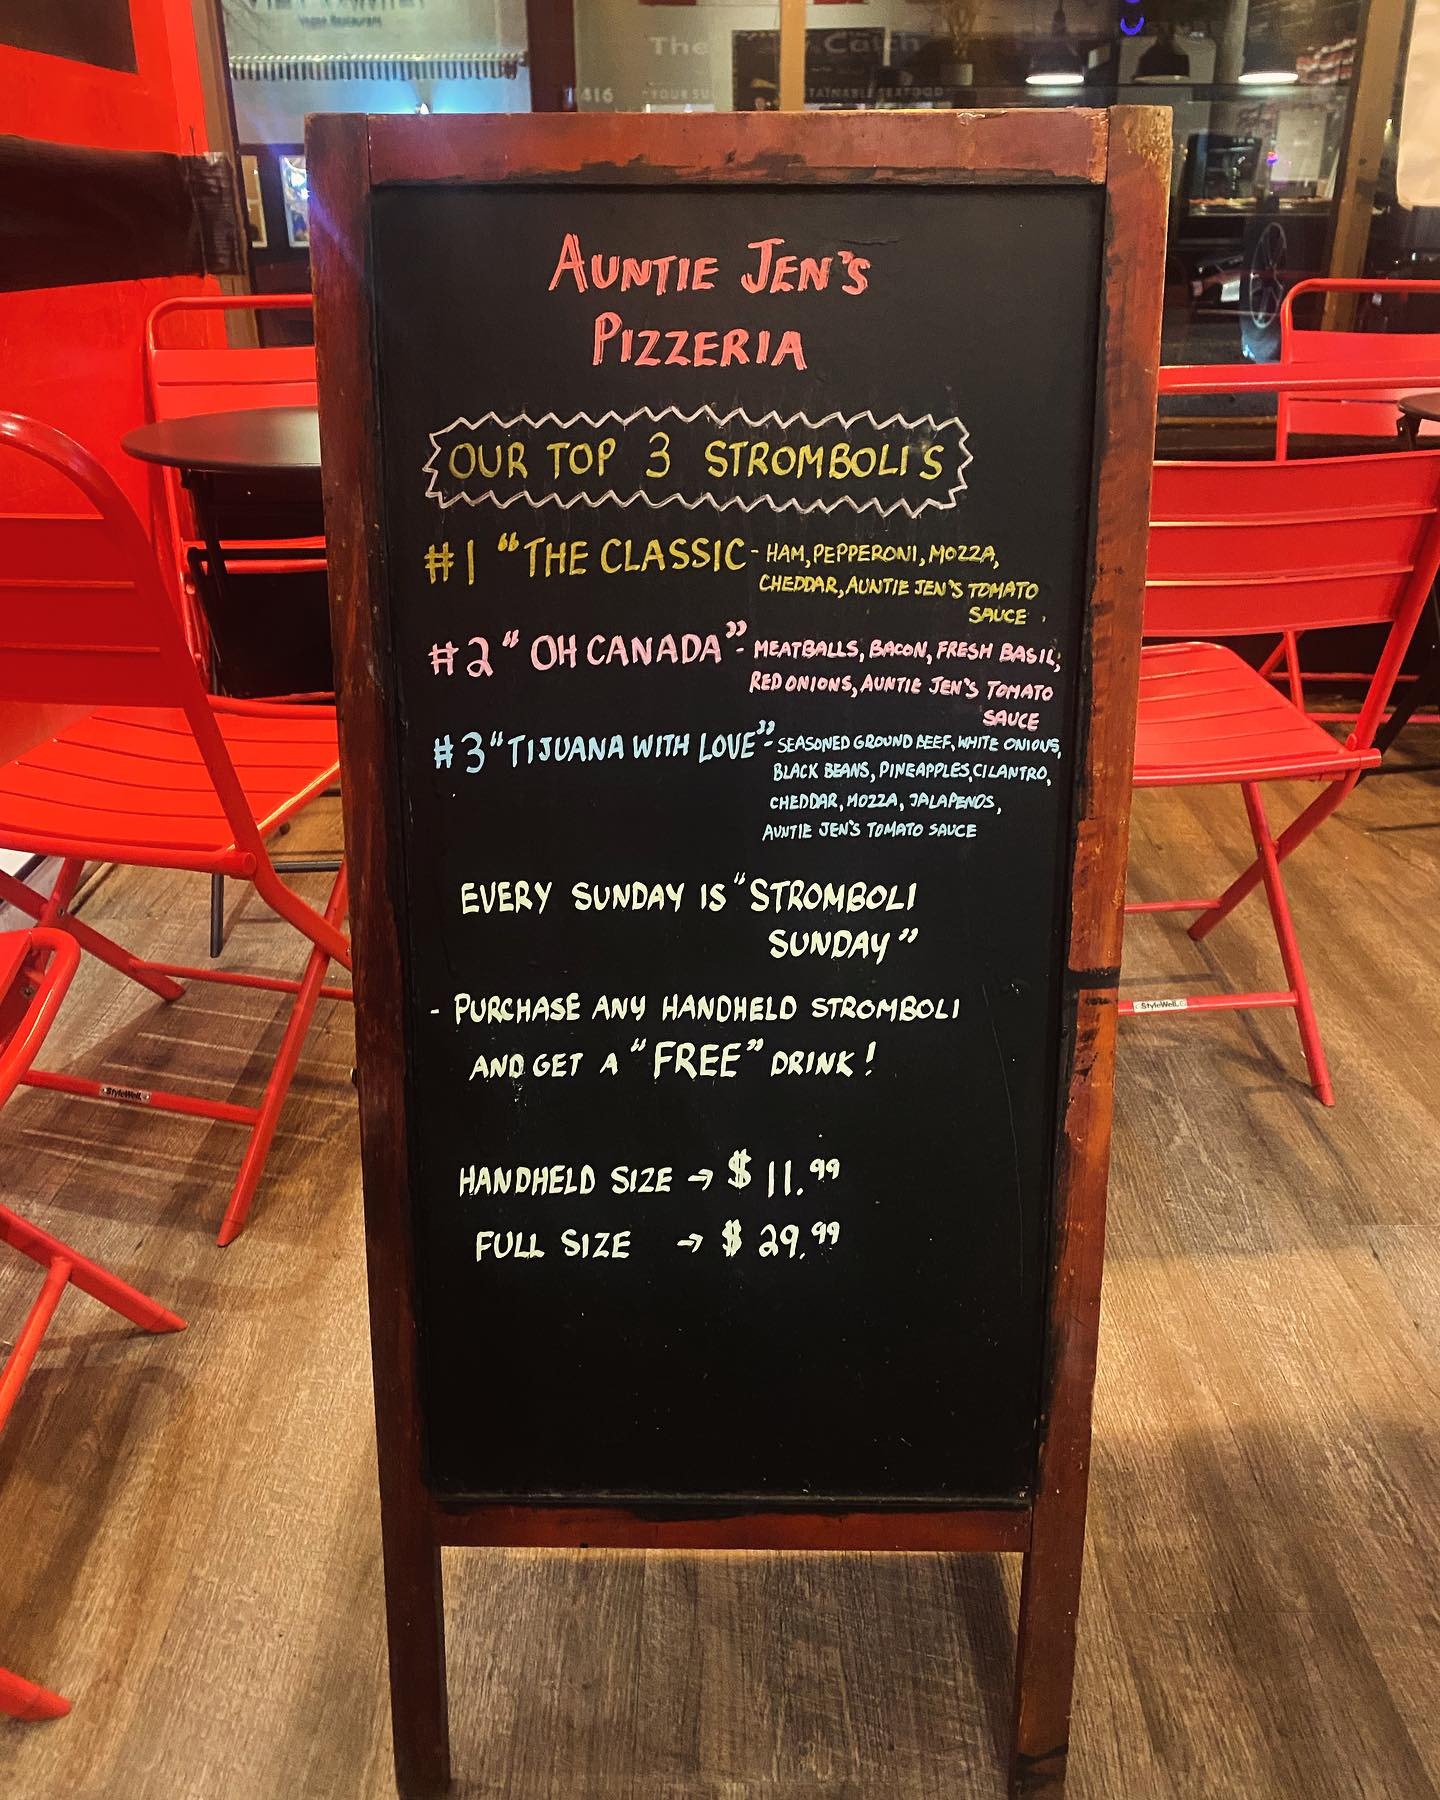 Vegan Restaurant
The
Catch
416
YOUR SU
TAINABLE SEAFOOD
AUNTIE JEN'S
PIZZERIA
OUR TOP 3 STROMBOLI'S
#1 "THE CLASSIC - HAM, PEPPERONI, MOZZA,
CHEDDAR, AUNTIE JEN'S TOMATO
SAUCE.
#2 "OH CANADA" - MEATBALLS, BACON, FRESH BASIL,
RED ONIONS, AUNTIE JEN'S TOMATO
SAUCE
#3 "TIJUANA WITH LOVE" - SEASONED GROUND BEEF, WHITE ONIONS,
BLACK BEANS, PINEAPPLES, CILANTRO,
CHEDDAR, MOZZA, JALAPENOS,
AUNTIE JEN'S TOMATO SAUCE
EVERY SUNDAY IS "STROMBOLI
SUNDAY"
- PURCHASE ANY HANDHELD STROMBOLI
AND GET A "FREE" DRINK!
HANDHELD SIZE → $11.99
FULL SIZE → $29.99
StyleWell
StyleWell